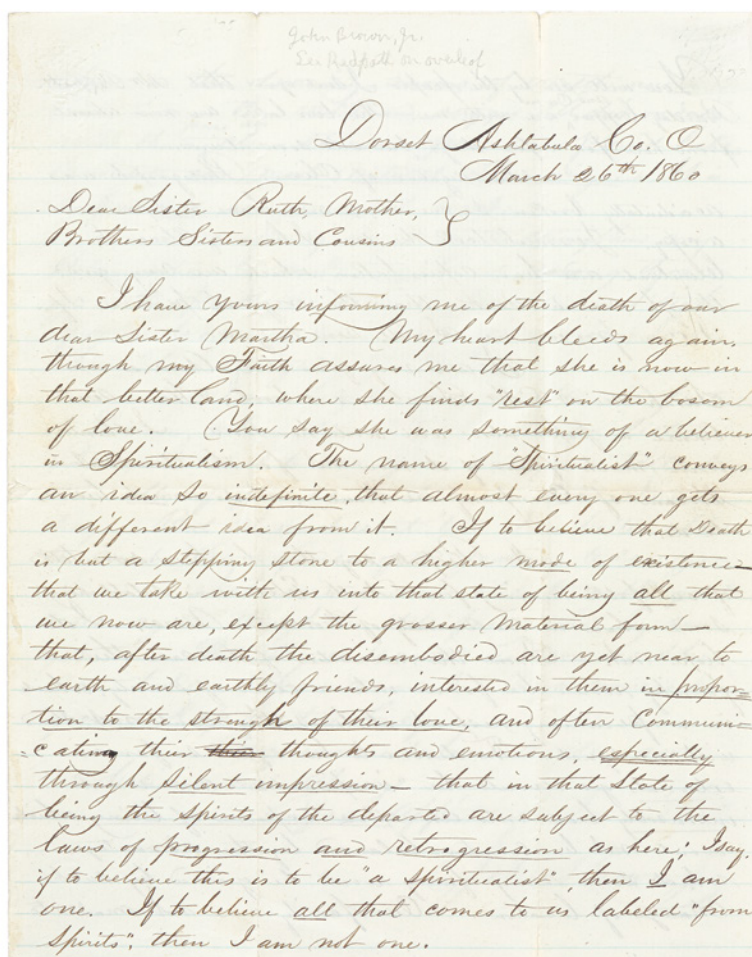 John Brown, Jr.
See Redpath on overleaf
Dorset Ashtabula Co. O
March 26th 1860
Dear Sister Ruth, Mother,
Brothers Sisters and Cousins
I have yours informing me of the death of our
dear Sister Martha. My heart bleeds again,
though my Faith assures me that she is now in
that better land, where she finds "rest" on the bosom
of love. You say she was something of a believer
in Spiritualism. The name of "Spiritualist" conveys
an idea so indefinite, that almost every one gets
a different idea from it. If to believe that Death
is but a stepping stone to a higher mode of existence—
that we take with us into that state of being all that
we now are, except the grosser material form—
that, after death the disembodied are yet near to
earth and earthly friends, interested in them in propor=
tion to the strengh of their love, and often Communi=
=cating their thoughts and emotions, especially
through silent impression— that in that State of
being the spirits of the departed are subject to the
laws of progression and retrogression as here; I say,
if to believe this is to be "a spiritualist", then I am
one. If to believe all that comes to us labeled "from
Spirits", then I am not one.